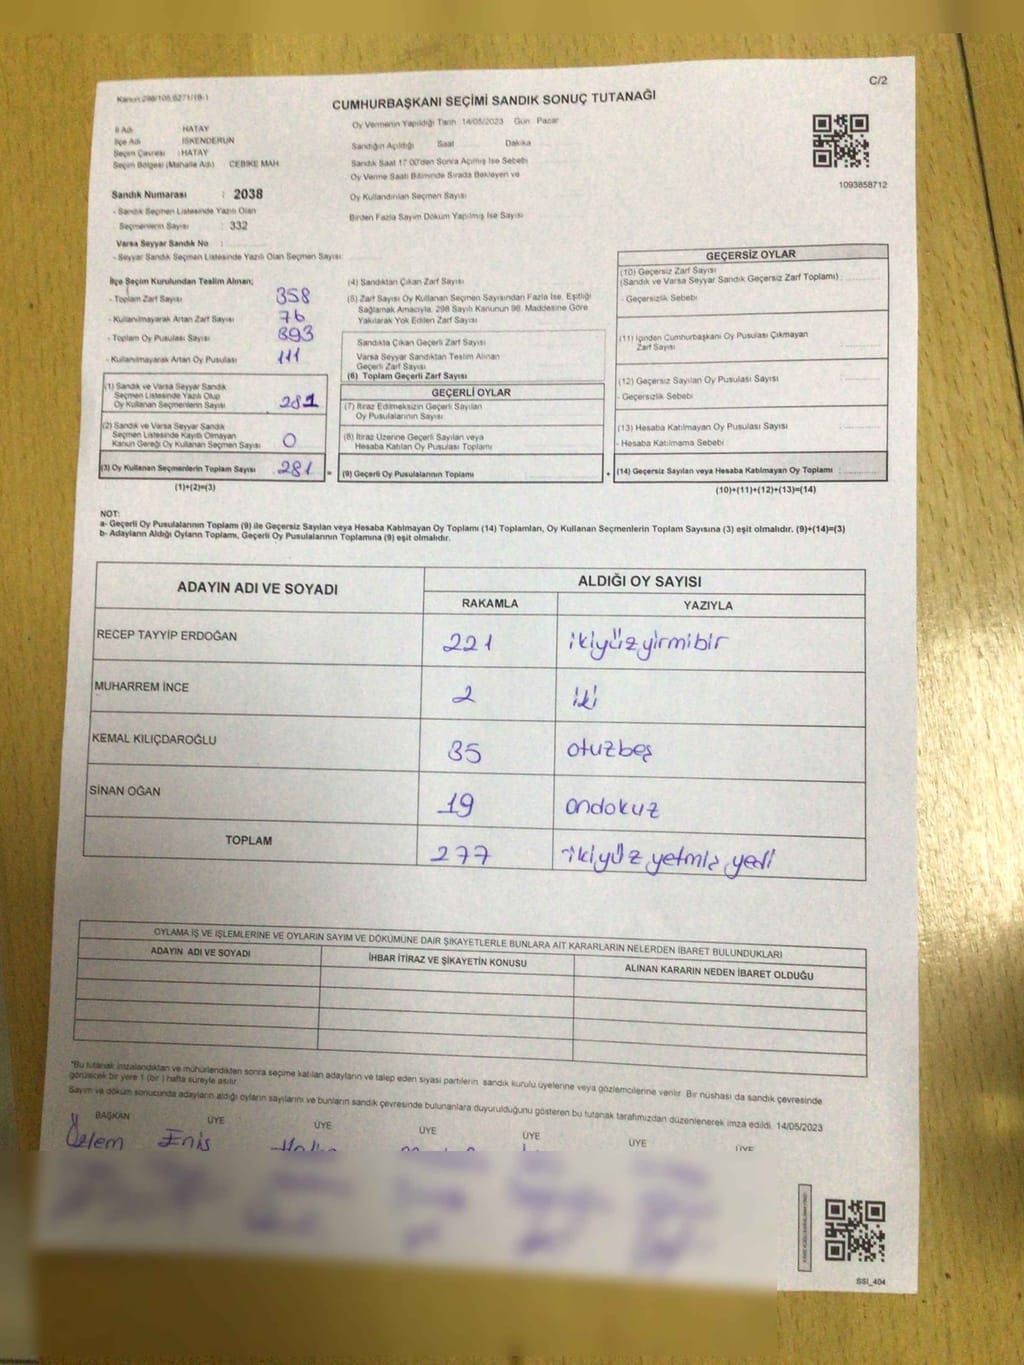 C/2
Kanun:298/105,6271/18-1
CUMHURBAŞKANI SEÇİMİ SANDIK SONUÇ TUTANAĞI
İl Adı HATAY
İlçe Adı İSKENDERUN
Seçim Çevresi : HATAY
Seçim Bölgesi (Mahalle Adı) CEBİKE MAH
Sandık Numarası : 2038
- Sandık Seçmen Listesinde Yazılı Olan
Seçmenlerin Sayısı : 332
Varsa Seyyar Sandık No :
- Seyyar Sandık Seçmen Listesinde Yazılı Olan Seçmen Sayısı:
Oy Vermenin Yapıldığı Tarih 14/05/2023 Gün Pazar
Sandığın Açıldığı Saat Dakika
Sandık Saat 17:00'den Sonra Açılmış İse Sebebi
Oy Verme Saati Bitiminde Sırada Bekleyen ve
Oy Kullandırılan Seçmen Sayısı
Birden Fazla Sayım Döküm Yapılmış İse Sayısı
1093858712
İlçe Seçim Kurulundan Teslim Alınan;
- Toplam Zarf Sayısı 358
- Kullanılmayarak Artan Zarf Sayısı 76
- Toplam Oy Pusulası Sayısı 393
- Kullanılmayarak Artan Oy Pusulası 111
(1) Sandık ve Varsa Seyyar Sandık
Seçmen Listesinde Yazılı Olup
Oy Kullanan Seçmenlerin Sayısı 281
(2) Sandık ve Varsa Seyyar Sandık
Seçmen Listesinde Kayıtlı Olmayan
Kanun Gereği Oy Kullanan Seçmen Sayısı 0
(3) Oy Kullanan Seçmenlerin Toplam Sayısı 281 =
(1)+(2)=(3)
(4) Sandıktan Çıkan Zarf Sayısı
(5) Zarf Sayısı Oy Kullanan Seçmen Sayısından Fazla İse, Eşitliği
Sağlamak Amacıyla, 298 Sayılı Kanunun 98. Maddesine Göre
Yakılarak Yok Edilen Zarf Sayısı
Sandıkta Çıkan Geçerli Zarf Sayısı
Varsa Seyyar Sandıktan Teslim Alınan
Geçerli Zarf Sayısı
(6) Toplam Geçerli Zarf Sayısı
GEÇERLİ OYLAR
(7) İtiraz Edilmeksizin Geçerli Sayılan
Oy Pusulalarının Sayısı
(8) İtiraz Üzerine Geçerli Sayılan veya
Hesaba Katılan Oy Pusulası Toplamı
(9) Geçerli Oy Pusulalarının Toplamı +
GEÇERSİZ OYLAR
(10) Geçersiz Zarf Sayısı
(Sandık ve Varsa Seyyar Sandık Geçersiz Zarf Toplamı) :
- Geçersizlik Sebebi
(11) İçinden Cumhurbaşkanı Oy Pusulası Çıkmayan
Zarf Sayısı
(12) Geçersiz Sayılan Oy Pusulası Sayısı
- Geçersizlik Sebebi
(13) Hesaba Katılmayan Oy Pusulası Sayısı
- Hesaba Katılmama Sebebi
(14) Geçersiz Sayılan veya Hesaba Katılmayan Oy Toplamı :
(10)+(11)+(12)+(13)=(14)
NOT:
a- Geçerli Oy Pusulalarının Toplamı (9) ile Geçersiz Sayılan veya Hesaba Katılmayan Oy Toplamı (14) Toplamları, Oy Kullanan Seçmenlerin Toplam Sayısına (3) eşit olmalıdır. (9)+(14)=(3)
b- Adayların Aldığı Oyların Toplamı, Geçerli Oy Pusulalarının Toplamına (9) eşit olmalıdır.
ADAYIN ADI VE SOYADI ALDIĞI OY SAYISI
RAKAMLA YAZIYLA
RECEP TAYYİP ERDOĞAN 221 ikiyüzyirmibir
MUHARREM İNCE 2 iki
KEMAL KILIÇDAROĞLU 35 otuzbeş
SİNAN OĞAN 19 ondokuz
TOPLAM 277 ikiyüz yetmiş yedi
OYLAMA İŞ VE İŞLEMLERİNE VE OYLARIN SAYIM VE DÖKÜMÜNE DAİR ŞİKAYETLERLE BUNLARA AİT KARARLARIN NELERDEN İBARET BULUNDUKLARI
ADAYIN ADI VE SOYADI İHBAR İTİRAZ VE ŞİKAYETİN KONUSU ALINAN KARARIN NEDEN İBARET OLDUĞU
"Bu tutanak imzalandıktan ve mühürlendikten sonra seçime katılan adayların ve talep eden siyasi partilerin sandık kurulu üyelerine veya gözlemcilerine verilir. Bir nüshası da sandık çevresinde
görülecek bir yere 1 (bir ) hafta süreyle asılır.
Sayım ve döküm sonucunda adayların aldığı oyların sayılarını ve bunların sandık çevresinde bulunanlara duyurulduğunu gösteren bu tutanak tarafımızdan düzenlenerek imza edildi. 14/05/2023
BAŞKAN ÜYE ÜYE ÜYE ÜYE ÜYE ÜYE
Özlem Enis
SSI_404